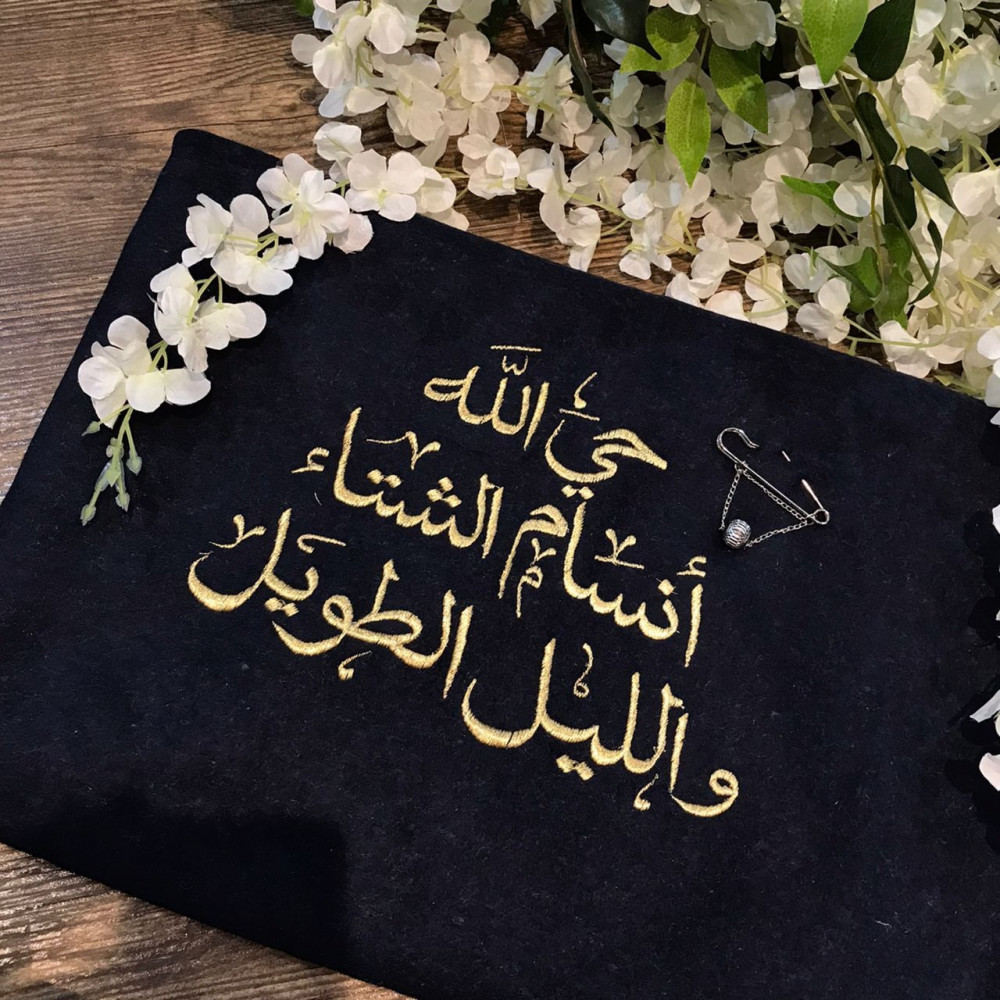 حيّ اللّه
أنسام الشتاء
والليل الطويل